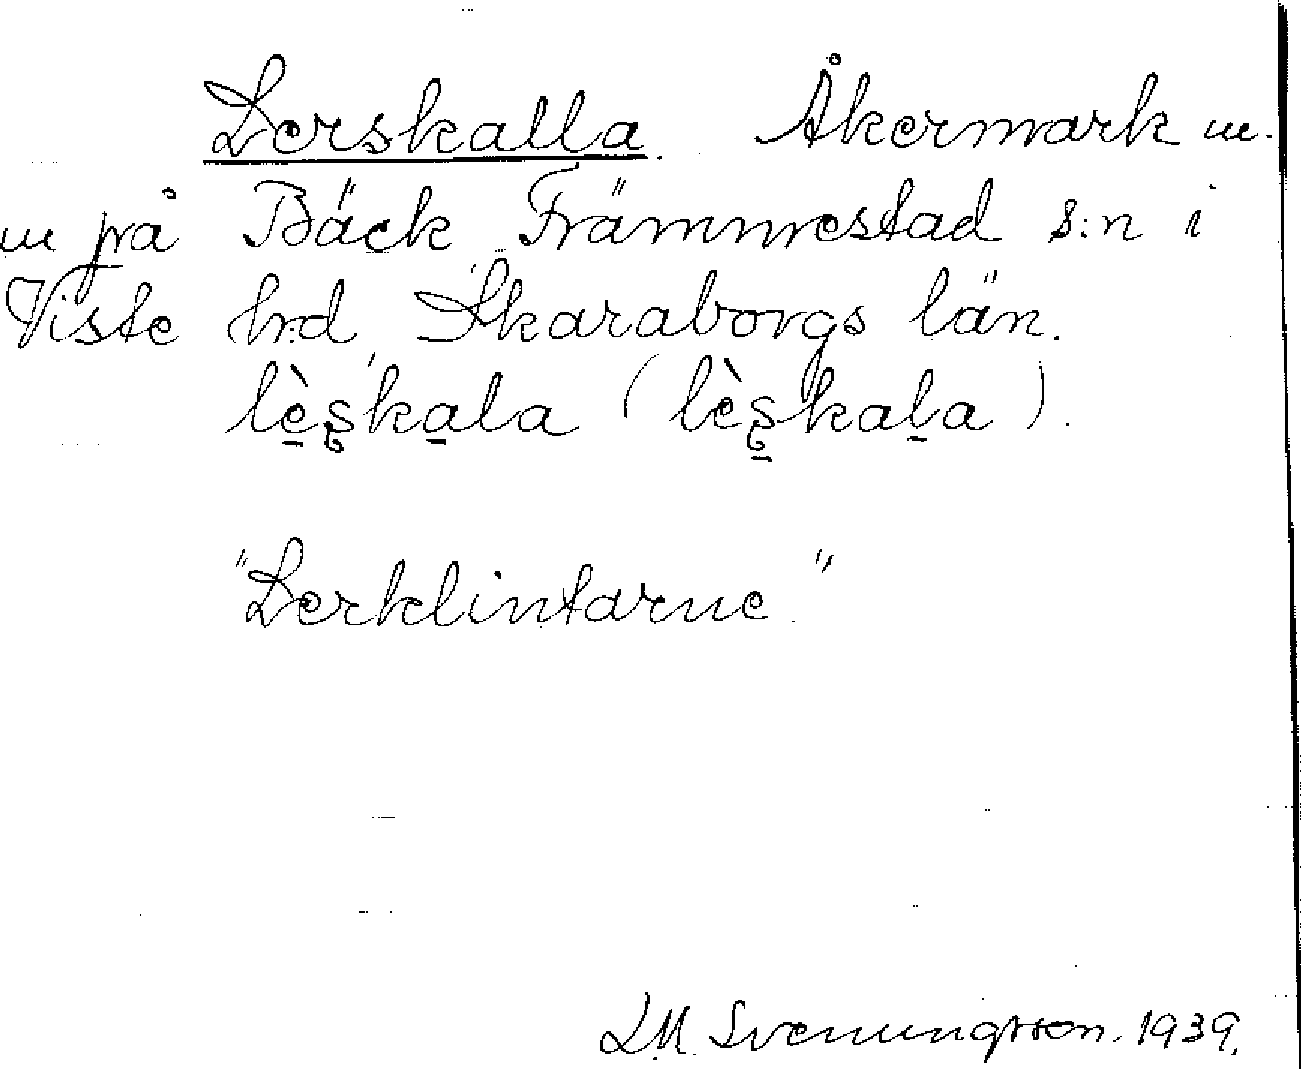 Lerskalla. Åkermark m.
m på Bäck Främmestad s:n i
Viste hrd, Skaraborgs län.
lè̱ʂka̱la (lèʂ̱kaḻa).
"Lerklintarne"
L.M. Svenungsson. 1939.